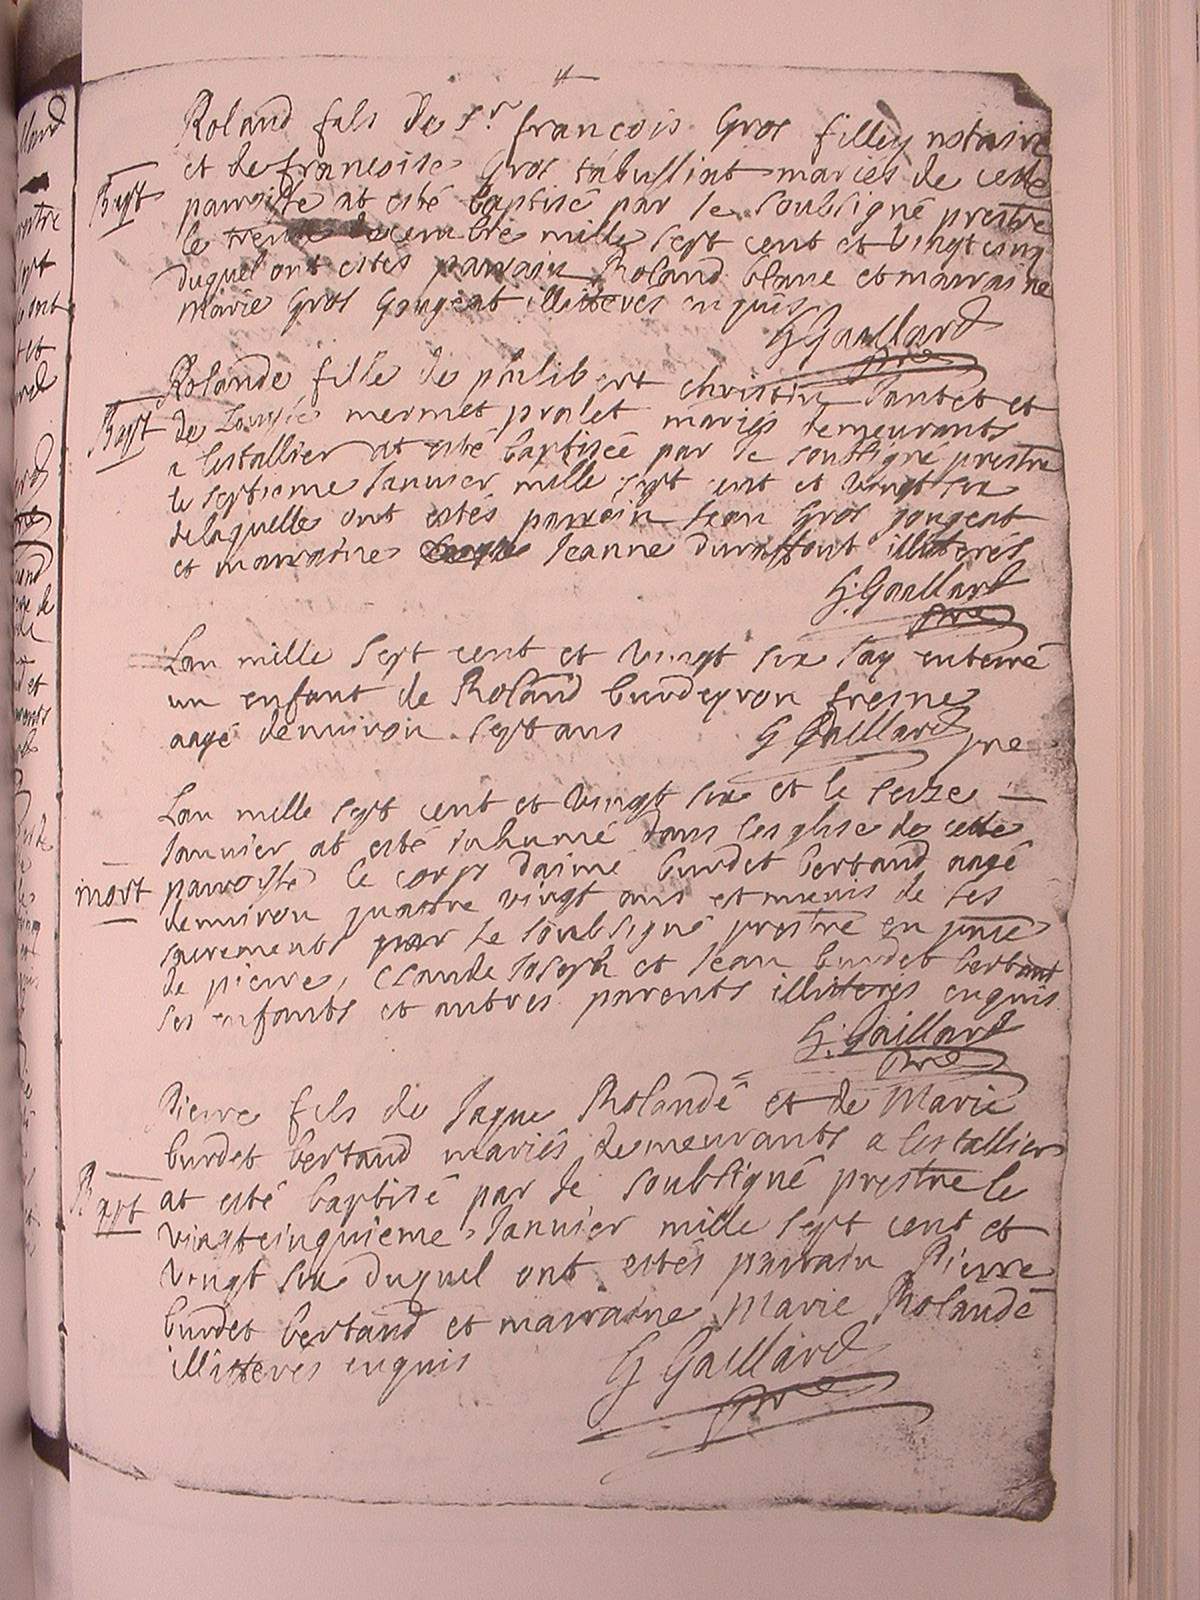 Roland fils de Sr. françois Gros filley notaire
et de francoise Gros tabusliat mariés de cette
Bapt
parroisse at esté baptisé par le soubsigné prestre
le trente decembre mille sept cent et vingt cinq
duquel ont estes parrain Roland blanc et marraine
Marie Gros Gongeat illitteres enquis
G Gaillard
pre
Rolande fille de philibert christin Tantet et
Bapt
de Louise mermet pralet mariés demeurants
a lestallier at esté baptisée par le soubsigné prestre
le septieme Janvier mille sept cent et vingt six
delaquelle ont estés parrain Jean Gros gongeat
et marraine Jeanne duraffourt illitterés
G: Gaillard
pre
Lan mille sept cent et vingt six Jay enterré
un enfant de Roland burdeyron fresne
aagé denviron sept ans G Gaillard pre
Lan mille sept cent et vingt six et le seize
Janvier at esté inhumé dans lesglise de cette
mort
parroisse le corps daimé burdet bertand aagé
denviron quattre vingt ans et munis de ses
sacrements par le soubsigné prestre en pnce
de pierre, Claude Joseph et Jean burdet bertant
ses enfants et autres parents illitterés enquis
G: Gaillard
pre
Pierre fils de Jaque Rolandé et de Marie
burdet bertand mariés demeurants a lestallier
Bapt
at esté baptisé par le soubsigné prestre le
vingtcinquieme Janvier mille sept cent et
vingt six duquel ont estés parrain Pierre
burdet bertand et marraine Marie Rolandé
illitterés enquis
G Gaillard
pre